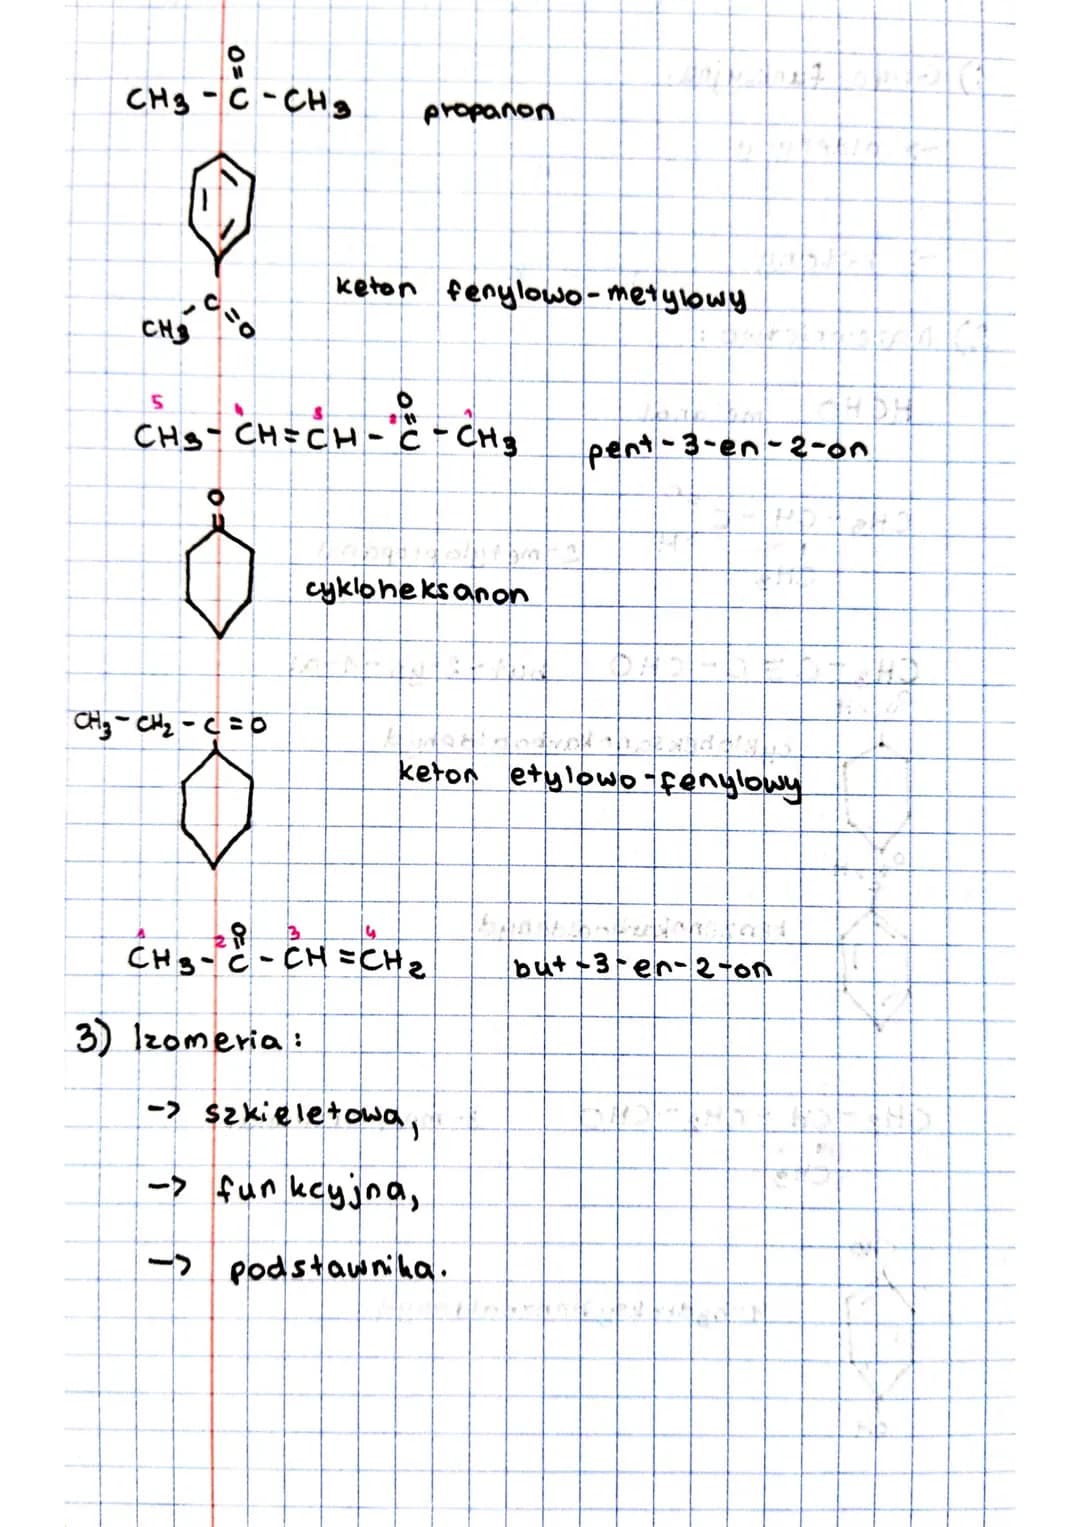 O
CH3 - C - CH3 propanon
keton fenylowo-metylowy
C
CH3 O
5 4 3 2 O 1
CH3 - CH = CH - C - CH3 pent-3-en-2-on
O
cykloheksanon
CH3 - CH2 - C = O
keton etylowo-fenylowy
1 2 O 3 4
CH3 - C - CH = CH2 but-3-en-2-on
3) Izomeria:
-> szkieletowa,
-> funkcyjna,
-> podstawnika.